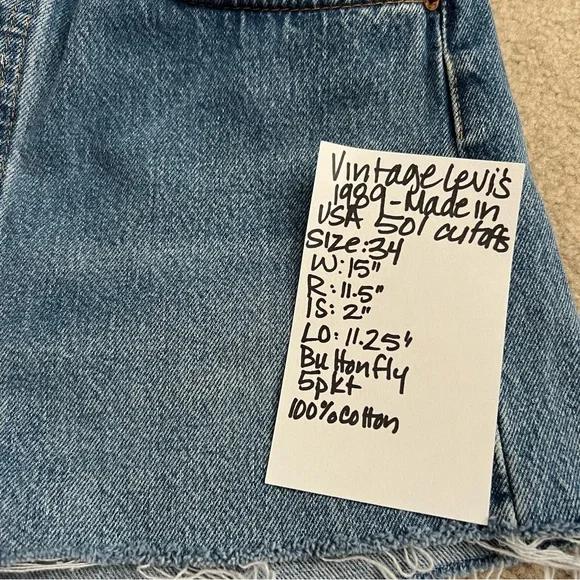 Vintage Levi's
1989-Made in
USA 501 cutoffs
Size:34
W:15"
R:11.5"
IS:2"
LO:11.25"
Buttonfly
5pkt
100%cotton